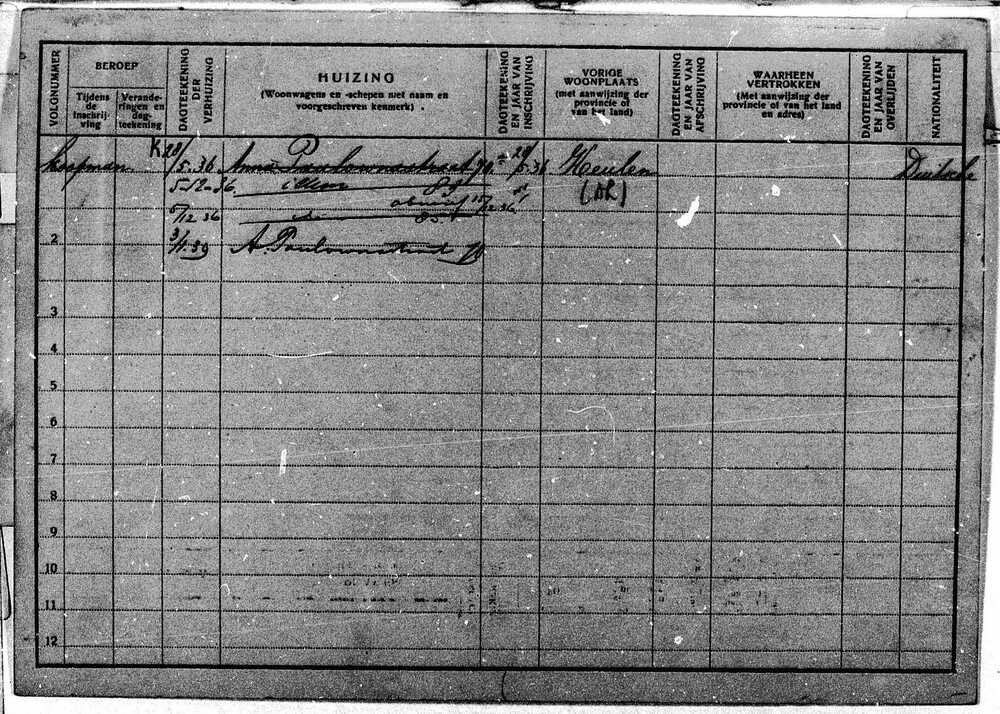 VOLGNUMMER
BEROEP
Tijdens de inschrij- ving
Verande- ringen en dag- teekening
DAGTEEKENING DER VERHUIZING
HUIZING
(Woonwagens en -schepen met naam en
voorgeschreven kenmerk) .
DAGTEEKENING EN JAAR VAN INSCHRIJVING
VORIGE WOONPLAATS
(met aanwijzing der provincie of van het land)
DAGTEEKENING EN JAAR VAN AFSCHRIJVING
WAARHEEN VERTROKKEN
(Met aanwijzing der provincie of van het land en adres)
DAGTEEKENING EN JAAR VAN OVERLIJDEN
NATIONALITEIT
koopman K 28/5.36 Anna Paulownastraat 28/5.36 Keulen Duitsche
5-12-36 idem 89 (DL)
5/12 36
2 3/1.39 A. Paulownastraat
3
4
5
6
7
8
9
10
11
12